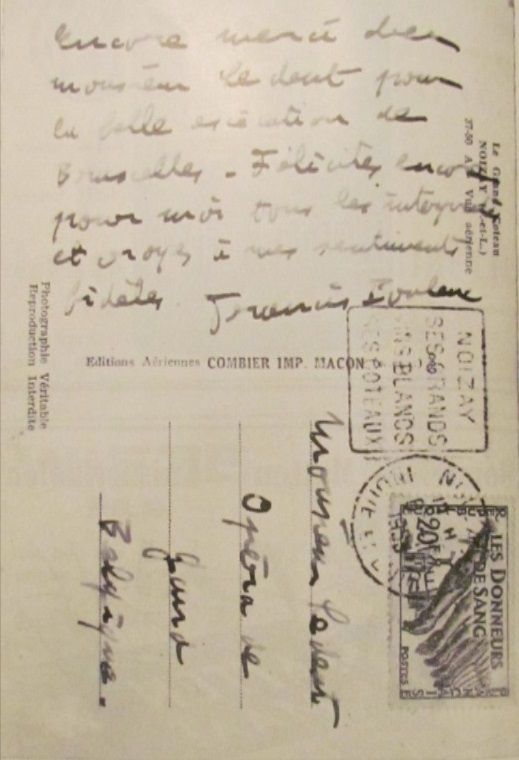 encore merci cher
monsieur Ledent pour
la belle exécution de
Bruxelles – Félicitez encore
pour moi tous les interprètes
et croyez à mes sentiments
fidèles Francis Poulenc
Le Grand Coteau
NOIZAY (I.-et-L.)
37-30 A Vue aérienne
Photographie Véritable
Reproduction Interdite
Editions Aériennes COMBIER IMP. MACON
NOIZAY
SES GRANDS
VINS BLANCS
SES COTEAUX
LES DONNEURS
DE SANG
20F
POSTES
Monsieur Ledent
Opéra de
Gand
Belgique.